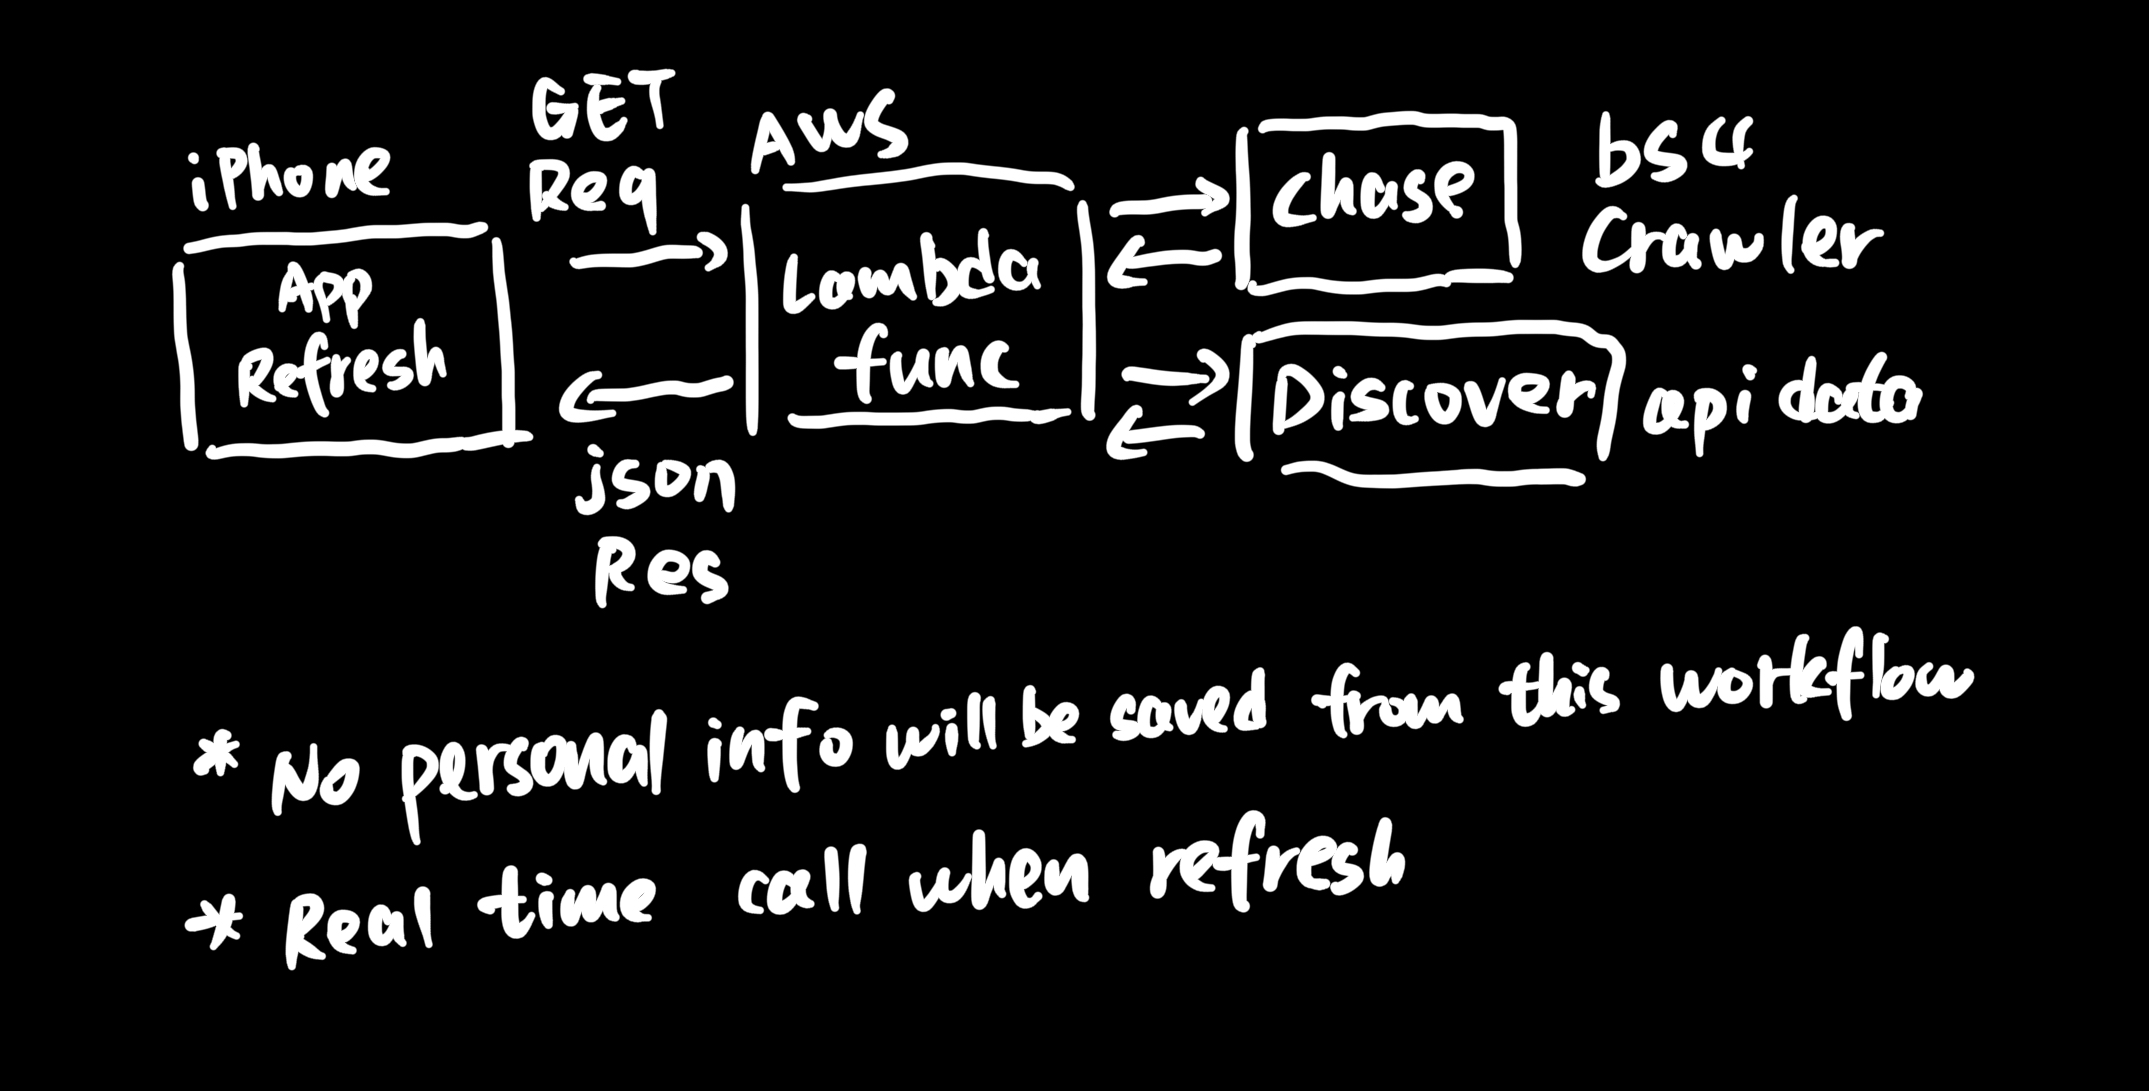 iPhone
App
Refresh
GET
Req
json
Res
AWS
Lambda
func
chase
bs4
crawler
Discover
api data
* No personal info will be saved from this workflow
* Real time call when refresh